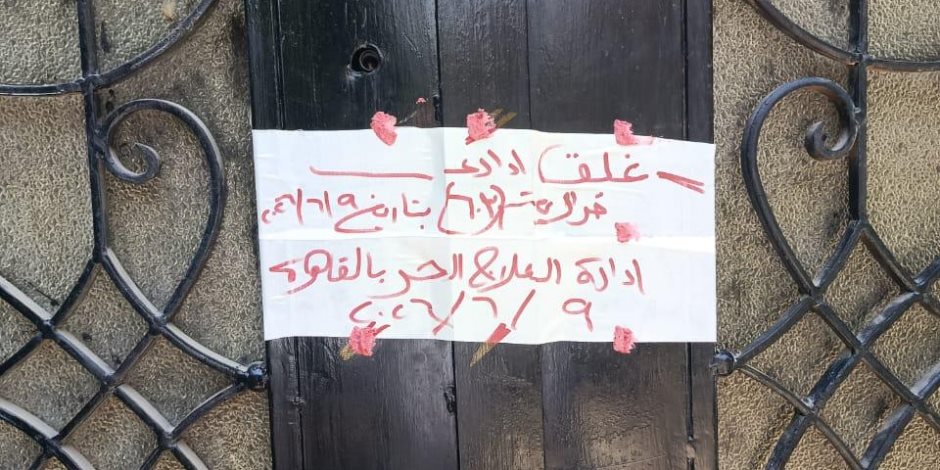 غلق ادارى
قرار رقم (٦٠٣) بتاريخ ٢٠٢٦/٦/٩
ادارة العلاج الحر بالقاهرة
٢٠٢٦/٦/٩